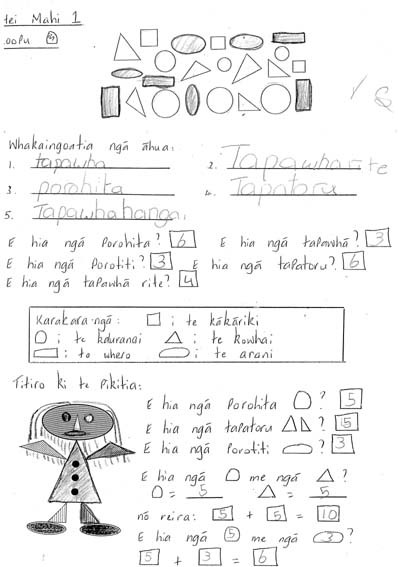 tei Mahi 1
Whakaingoatia ngā āhua:
1. tapawha 2. Tapawha rite
3. porohita 4. Tapatoru
5. Tapawhahangai
E hia ngā porohita? 6 E hia ngā tapawhā? 3
E hia ngā porotiti? 3 E hia ngā tapatoru? 6
E hia ngā tapawhā rite? 4
Karakara ngā: i te kākāriki
i te kauranai i te kowhai
i te whero i te arani
Titiro ki te pikitia:
E hia ngā porohita ? 5
E hia ngā tapatoru ? 5
E hia ngā porotiti ? 3
E hia ngā me ngā ?
= 5 = 5
nō reira: 5 + 5 = 10
E hia ngā 5 me ngā 3 ?
5 + 3 = 6